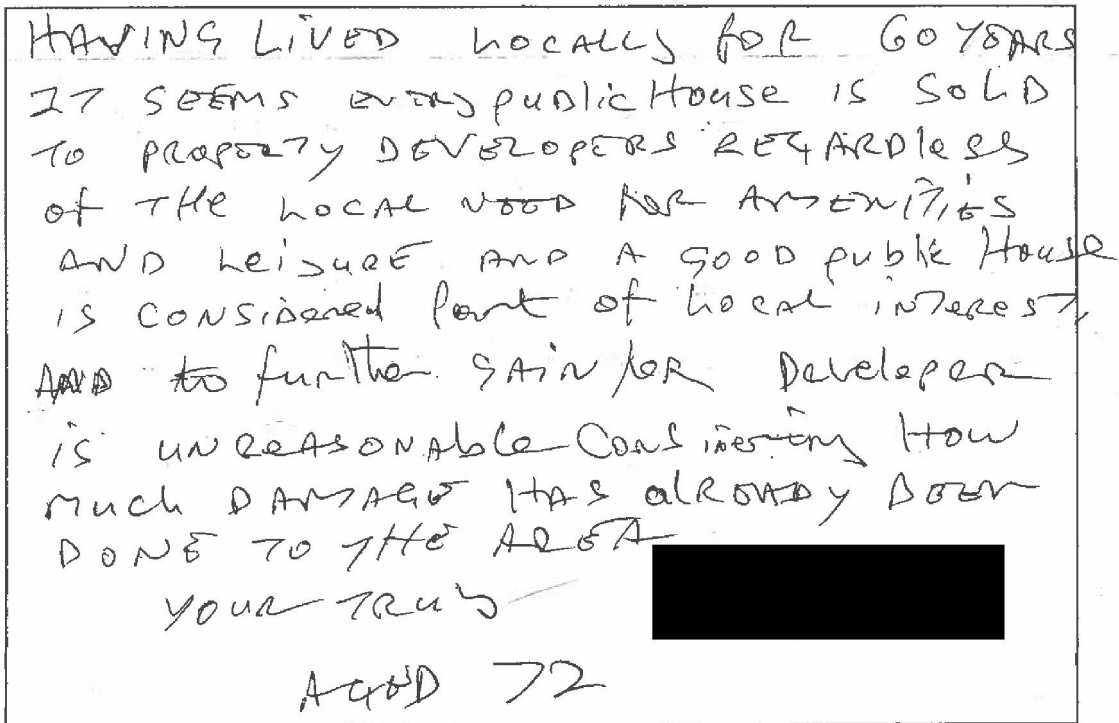 HAVING LIVED LOCALLY FOR 60 YEARS
IT SEEMS EVERY PUBLIC HOUSE IS SOLD
TO PROPERTY DEVELOPERS REGARDLESS
OF THE LOCAL NEED FOR AMENITIES
AND LEISURE AND A GOOD PUBLIC HOUSE
IS CONSIDERED PART OF LOCAL INTEREST,
AND to further GAIN FOR Developer
is UNREASONABLE CONSIDERING HOW
much DAMAGE HAS ALREADY BEEN
DONE TO THE AREA
YOUR TRULY
AGED 72